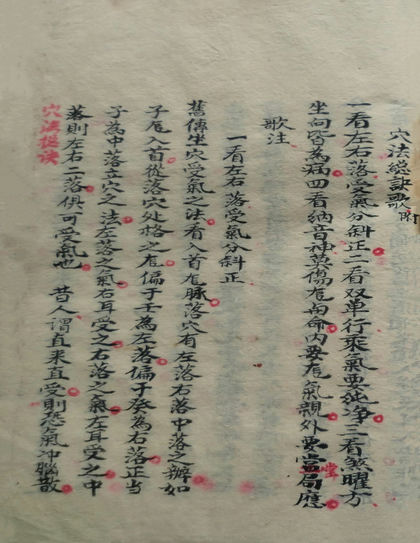 穴法總訣歌附
一看左右落受氣分斜正二看双单行乘氣要純净三看煞曜方
坐向皆為病四看納音神莫傷龙與命内要龙氣親外要當局應
堂
歌注
一看左右落受氣分斜正
舊傳坐穴受氣之法看入首龙脉落穴有左落右落中落之辦如
子龙入首從落穴处格之龙偏于壬為左落偏于癸為右落正当
子為中落立穴之法左落之氣右耳受之右落之氣左耳受之中
落則左右二落俱可受氣也 昔人謂直来直受則恐氣冲腦散
穴法總诀